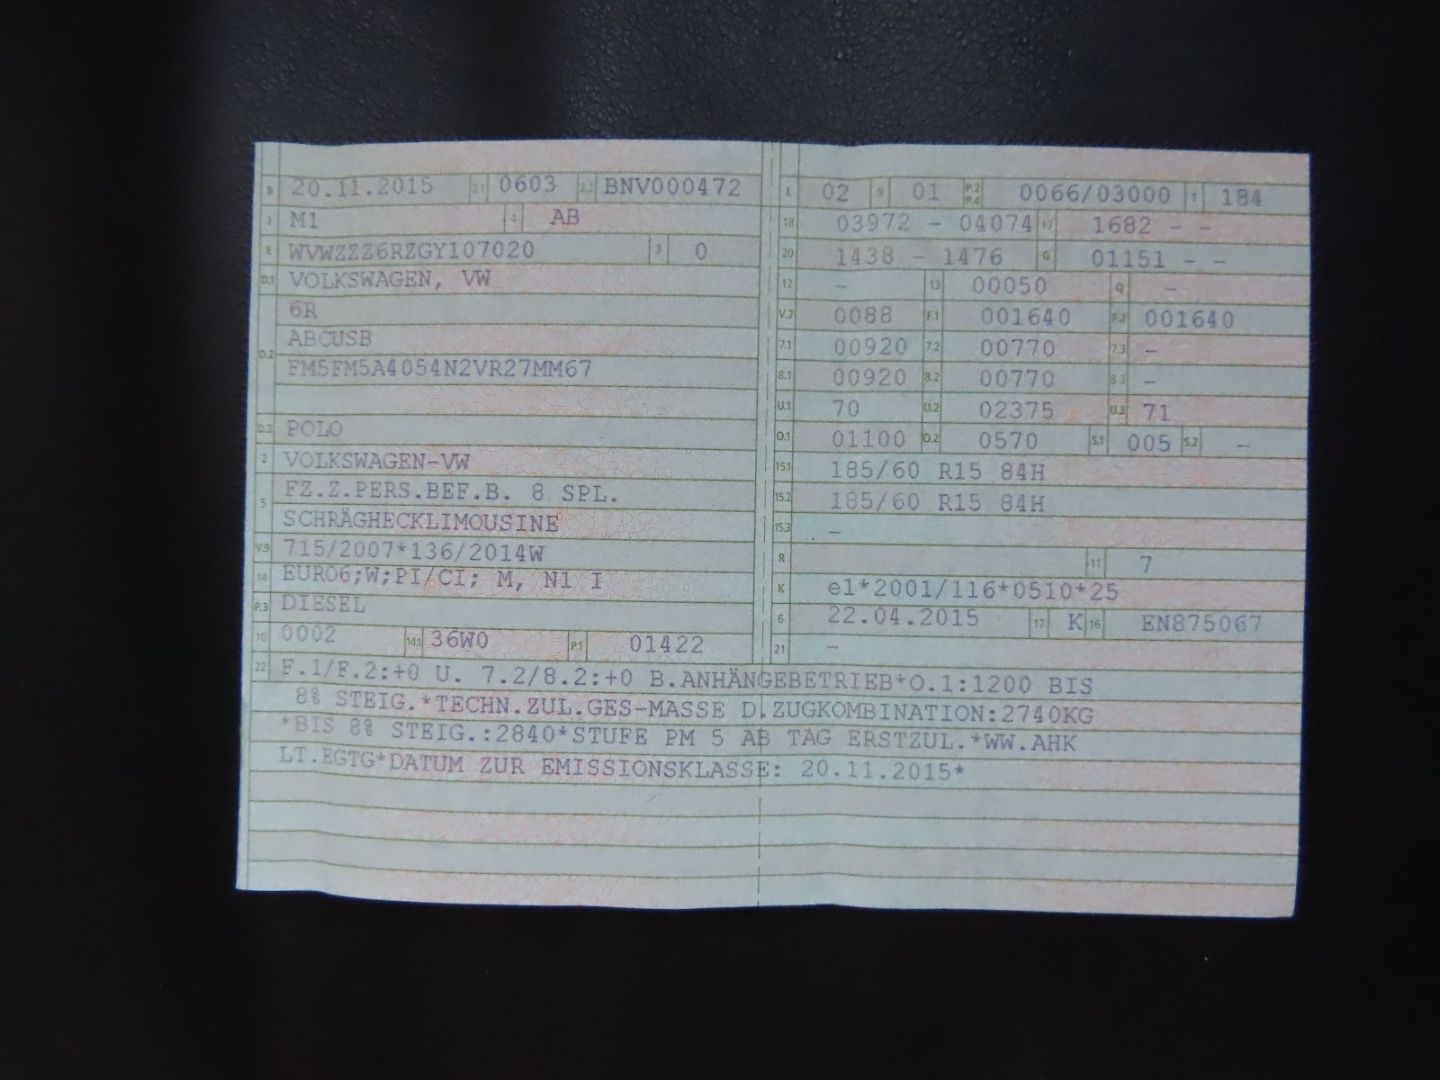 B 20.11.2015 2.1 0603 2.2 BNV000472
J M1 4 AB
E WVWZZZ6RZGY107020 3 0
D.1 VOLKSWAGEN, VW
6R
D.2 ABCUSB
FM5FM5A4054N2VR27MM67
D.3 POLO
2 VOLKSWAGEN-VW
5 FZ.Z.PERS.BEF.B. 8 SPL.
SCHRÄGHECKLIMOUSINE
V.9 715/2007*136/2014W
14 EURO6;W;PI/CI; M, N1 I
P.3 DIESEL
10 0002 14.1 36W0 P.1 01422
L 02 9 01 P.2 P.4 0066/03000 T 184
18 03972 - 04074 19 1682 - -
20 1438 - 1476 G 01151 - -
12 - 13 00050 Q -
V.7 0088 F.1 001640 F.2 001640
7.1 00920 7.2 00770 7.3 -
8.1 00920 8.2 00770 8.3 -
U.1 70 U.2 02375 U.3 71
O.1 01100 O.2 0570 S.1 005 S.2 -
15.1 185/60 R15 84H
15.2 185/60 R15 84H
15.3 -
R 11 7
K e1*2001/116*0510*25
6 22.04.2015 17 K 16 EN875067
21 -
22 F.1/F.2:+0 U. 7.2/8.2:+0 B.ANHÄNGEBETRIEB*O.1:1200 BIS
8% STEIG.*TECHN.ZUL.GES-MASSE D.ZUGKOMBINATION:2740KG
*BIS 8% STEIG.:2840*STUFE PM 5 AB TAG ERSTZUL.*WW.AHK
LT.EGTG*DATUM ZUR EMISSIONSKLASSE: 20.11.2015*